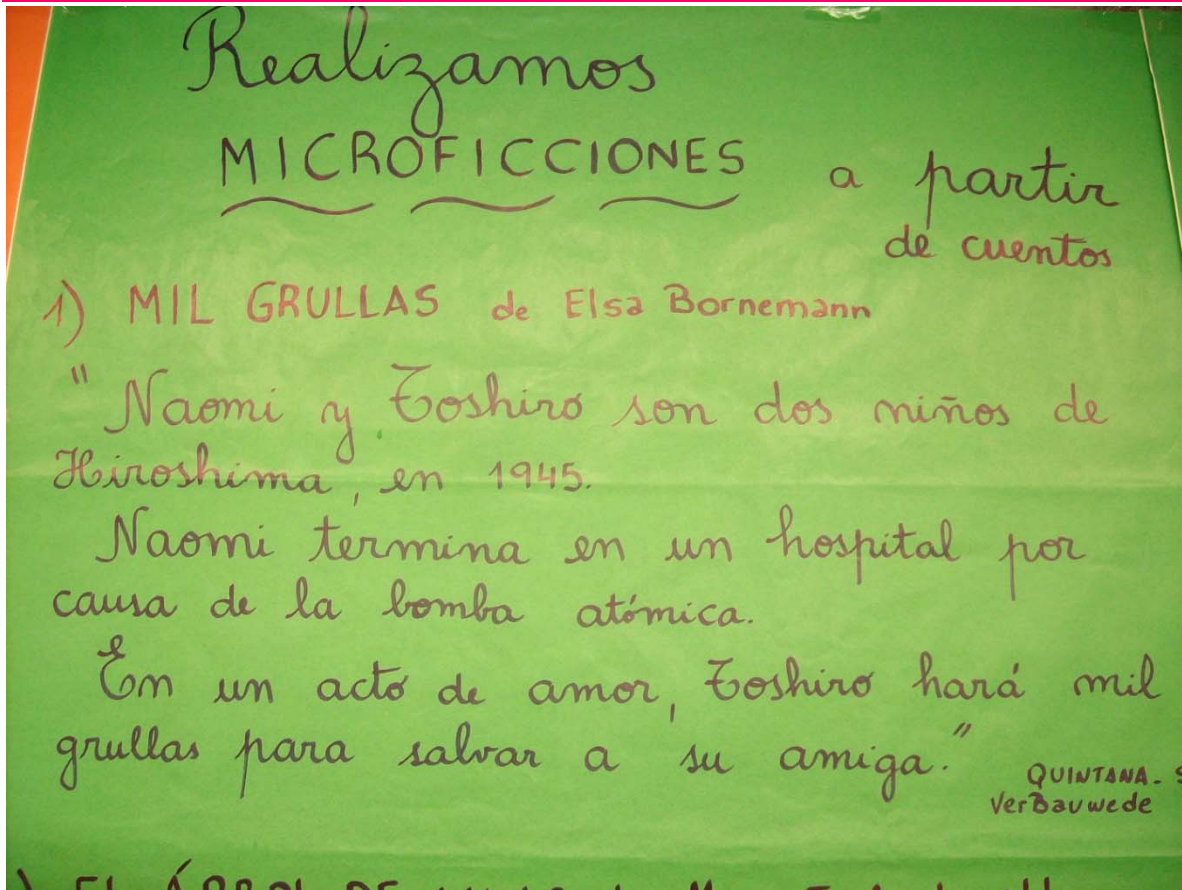 Realizamos
MICROFICCIONES a partir
de cuentos
1) MIL GRULLAS de Elsa Bornemann
"Naomi y Toshiro son dos niños de
Hiroshima, en 1945.
Naomi termina en un hospital por
causa de la bomba atómica.
En un acto de amor, Toshiro hará mil
grullas para salvar a su amiga."
QUINTANA -
VerBauwede
EL ÁRBOL DE